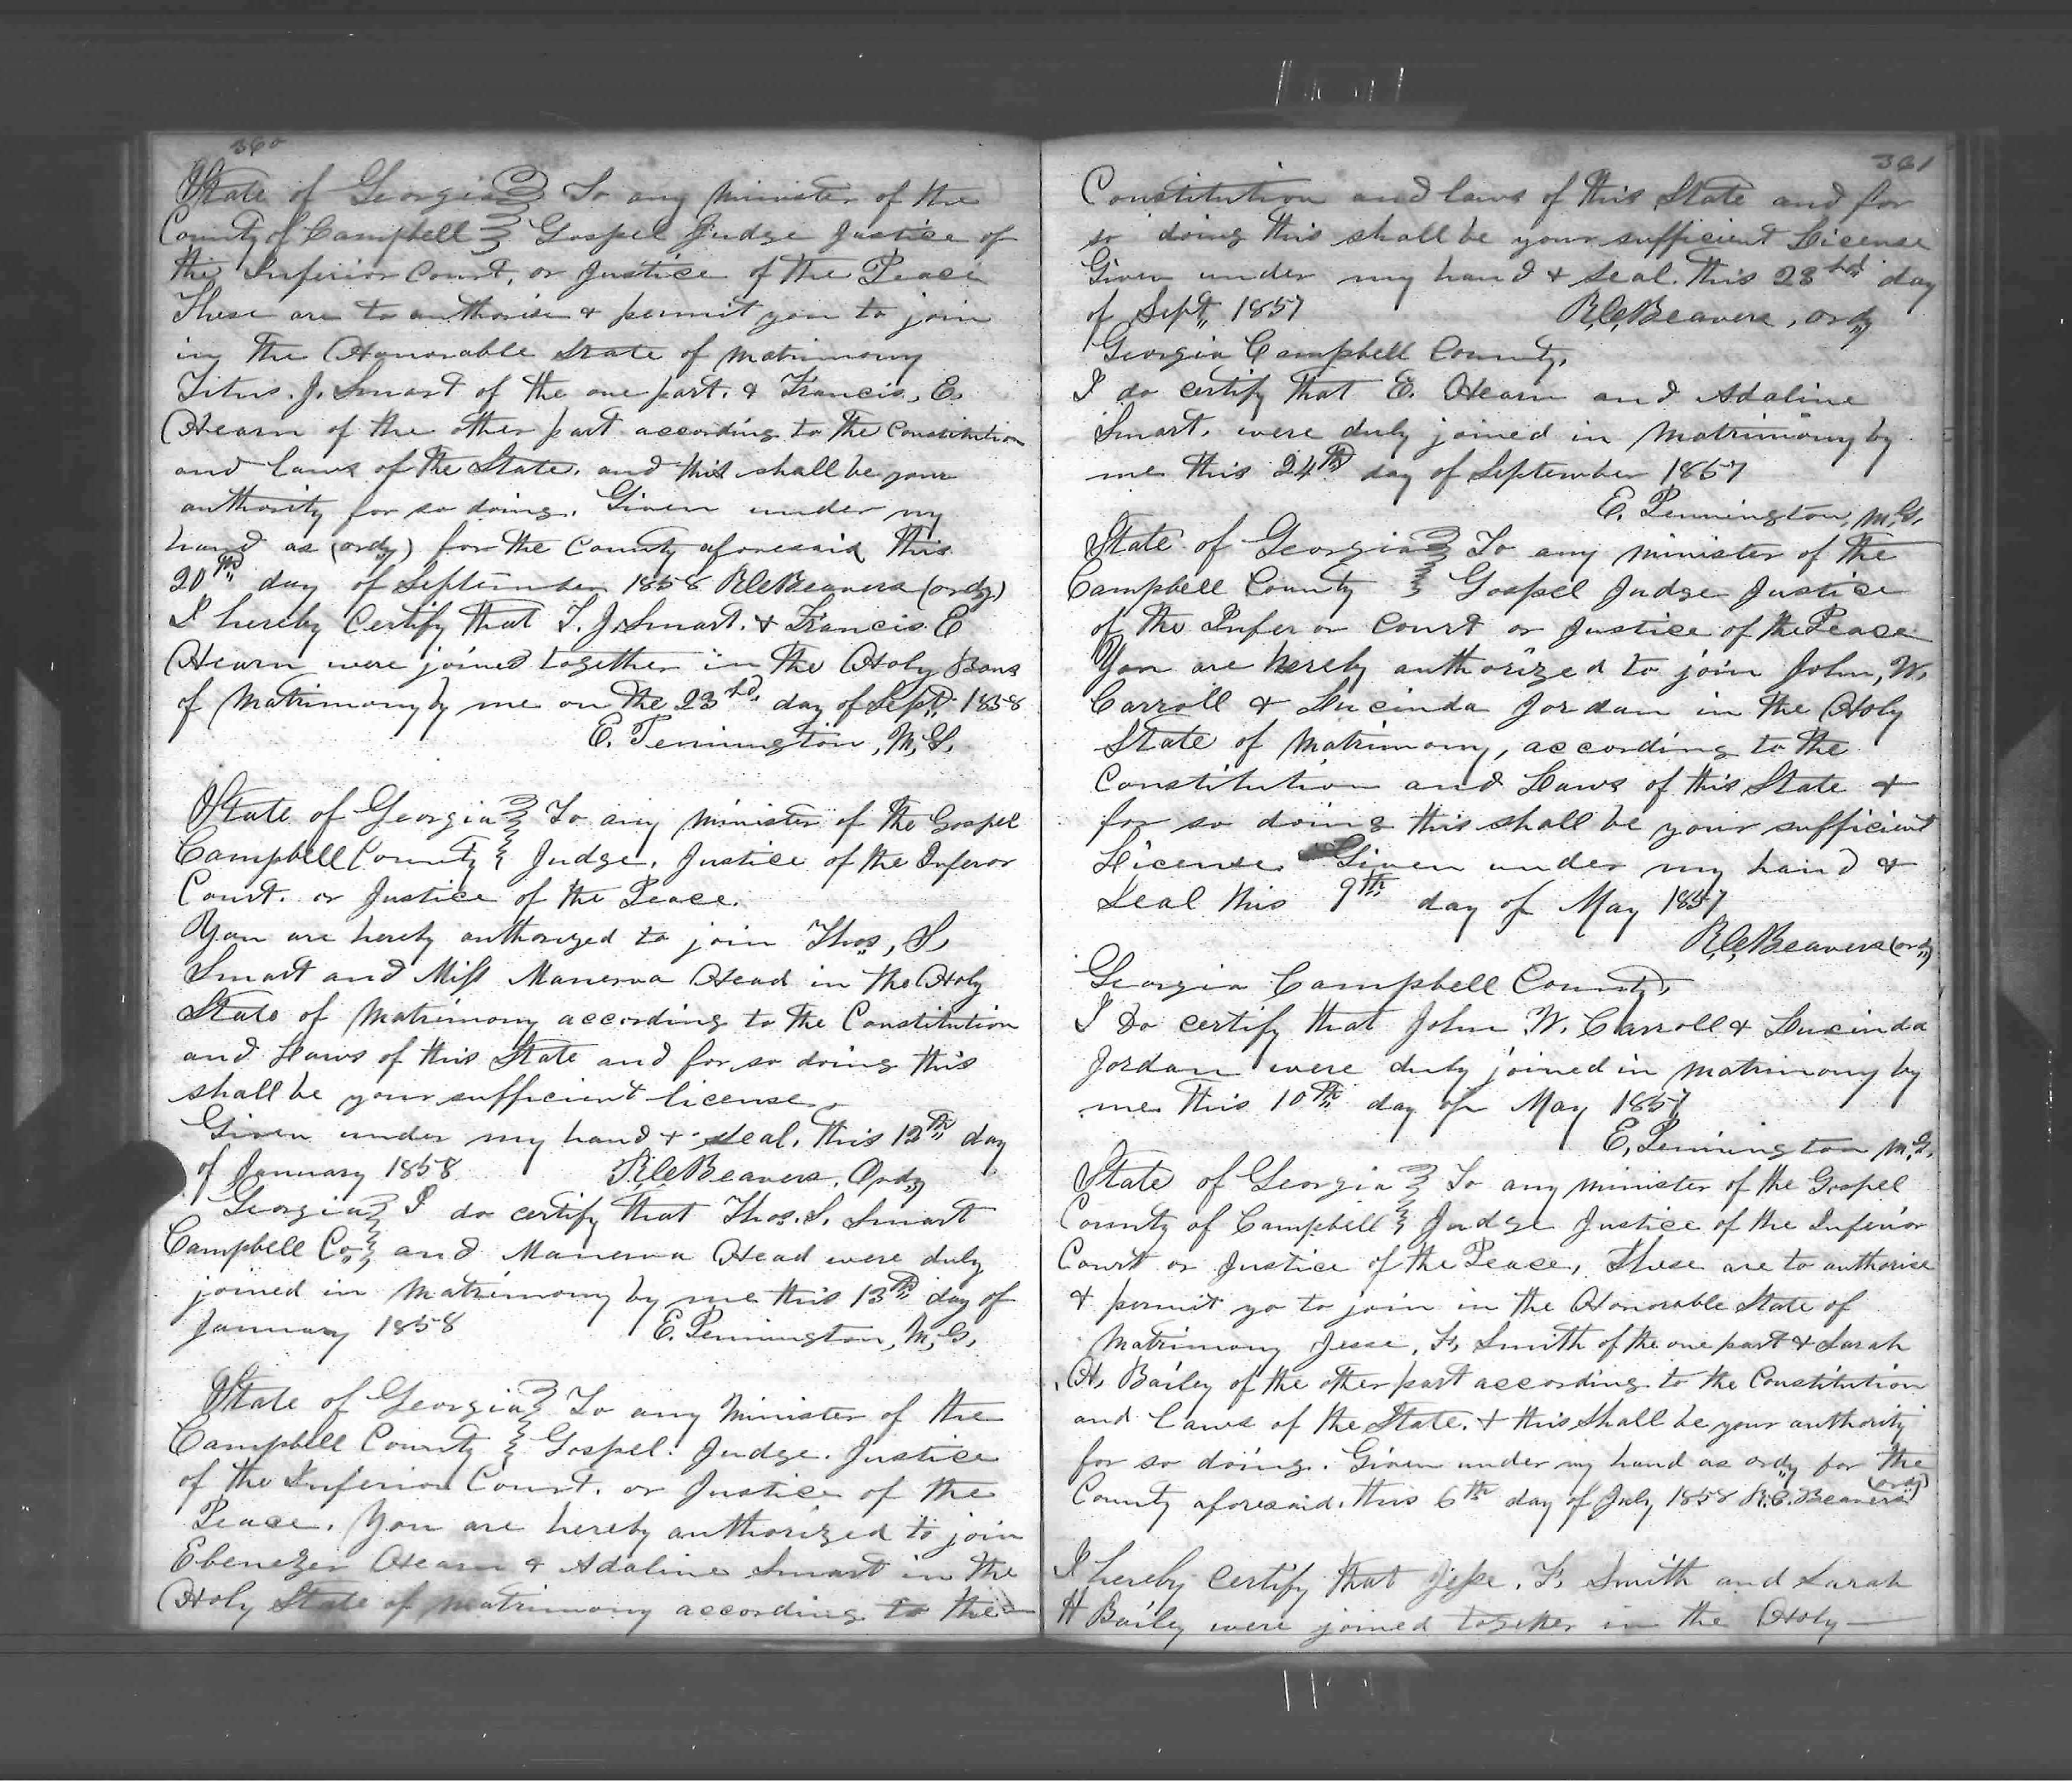 360
State of Georgia To any Minister of the
County of Campbell Gospel Judge Justice of
the Inferior Court, or Justice of the Peace
These are to authorise & permit you to join
in the Honorable State of Matrimony
Titus. J. Smart of the one part. & Francis, E.
Hearn of the other part according to the Constitution
and laws of the State. and this shall be your
authority for so doing. Given under my
hand as (ordy) for the County aforesaid this
20th day of September 1858 R.C. Beavers (ordy)
I hereby Certify that T. J. Smart. & Francis E
Hearn were joined together in the Holy Bans
of Matrimony by me on the 23rd, day of Sept 1858
E. Pennington, M, G,
State of Georgia To any Minister of the Gospel
Campbell County Judge. Justice of the Inferor
Court. or Justice of the Peace.
You are hereby authorized to join Thos, S,
Smart and Miss Manerva Head in the Holy
State of Matrimony according to the Constitution
and Laws of this State and for so doing this
shall be your sufficient license.
Given under my hand & seal. this 12th day
of January 1858 R.C. Beavers. Ordy
Georgia I do certify that Thos. S. Smart
Campbell Co, and Manerva Head were duly
joined in Matrimony by me this 13th day of
January 1858 E. Pennington, M, G,
State of Georgia To any Minister of the
Campbell County Gospel. Judge. Justice
of the Inferior Court. or Justice of the
Peace. You are hereby authorized to join
Ebenezer Hearn & Adaline Smart in the
Holy State of Matrimony according to the
361
Constitution and laws of this State and for
so doing this shall be your sufficient License
Given under my hand & seal. this 23rd day
of Sept, 1857 R.C. Beavers, Ordy
Georgia Campbell County,
I do certify that E. Hearn and Adaline
Smart. were duly joined in Matrimony by
me this 24th day of September 1857
E. Pennington, M,G,
State of Georgia To any minister of the
Campbell County Gospel Judge Justice
of the Infer or Court or Justice of the Peace
You are hereby authorized to join John, W.
Carroll & Lucinda Jordan in the Holy
State of Matrimony, according to the
Constitution and Laws of this State &
for so doing this shall be your sufficient
License. Given under my hand &
Seal this 9th day of May 1857
R.C. Beavers (ordy)
Georgia Campbell County,
I do certify that John W. Carroll & Lucinda
Jordan were duly joined in matrimony by
me this 10th day of May 1857
E. Pennington M,G,
State of Georgia To any minister of the Gospel
County of Campbell Judge Justice of the Inferior
Court or Justice of the Peace, These are to authorise
& permit yo to join in the Honorable State of
Matrimony Jesse, F, Smith of the one part & Sarah
H, Bailey of the other part according to the Constitution
and laws of the State. & this shall be your authority
for so doing. Given under my hand as ordy for the
County aforesaid. this 6th day of July 1858 R.C. Beavers (ordy)
I hereby certify that Jesse, F, Smith and Sarah
H Bailey were joined together in the Holy